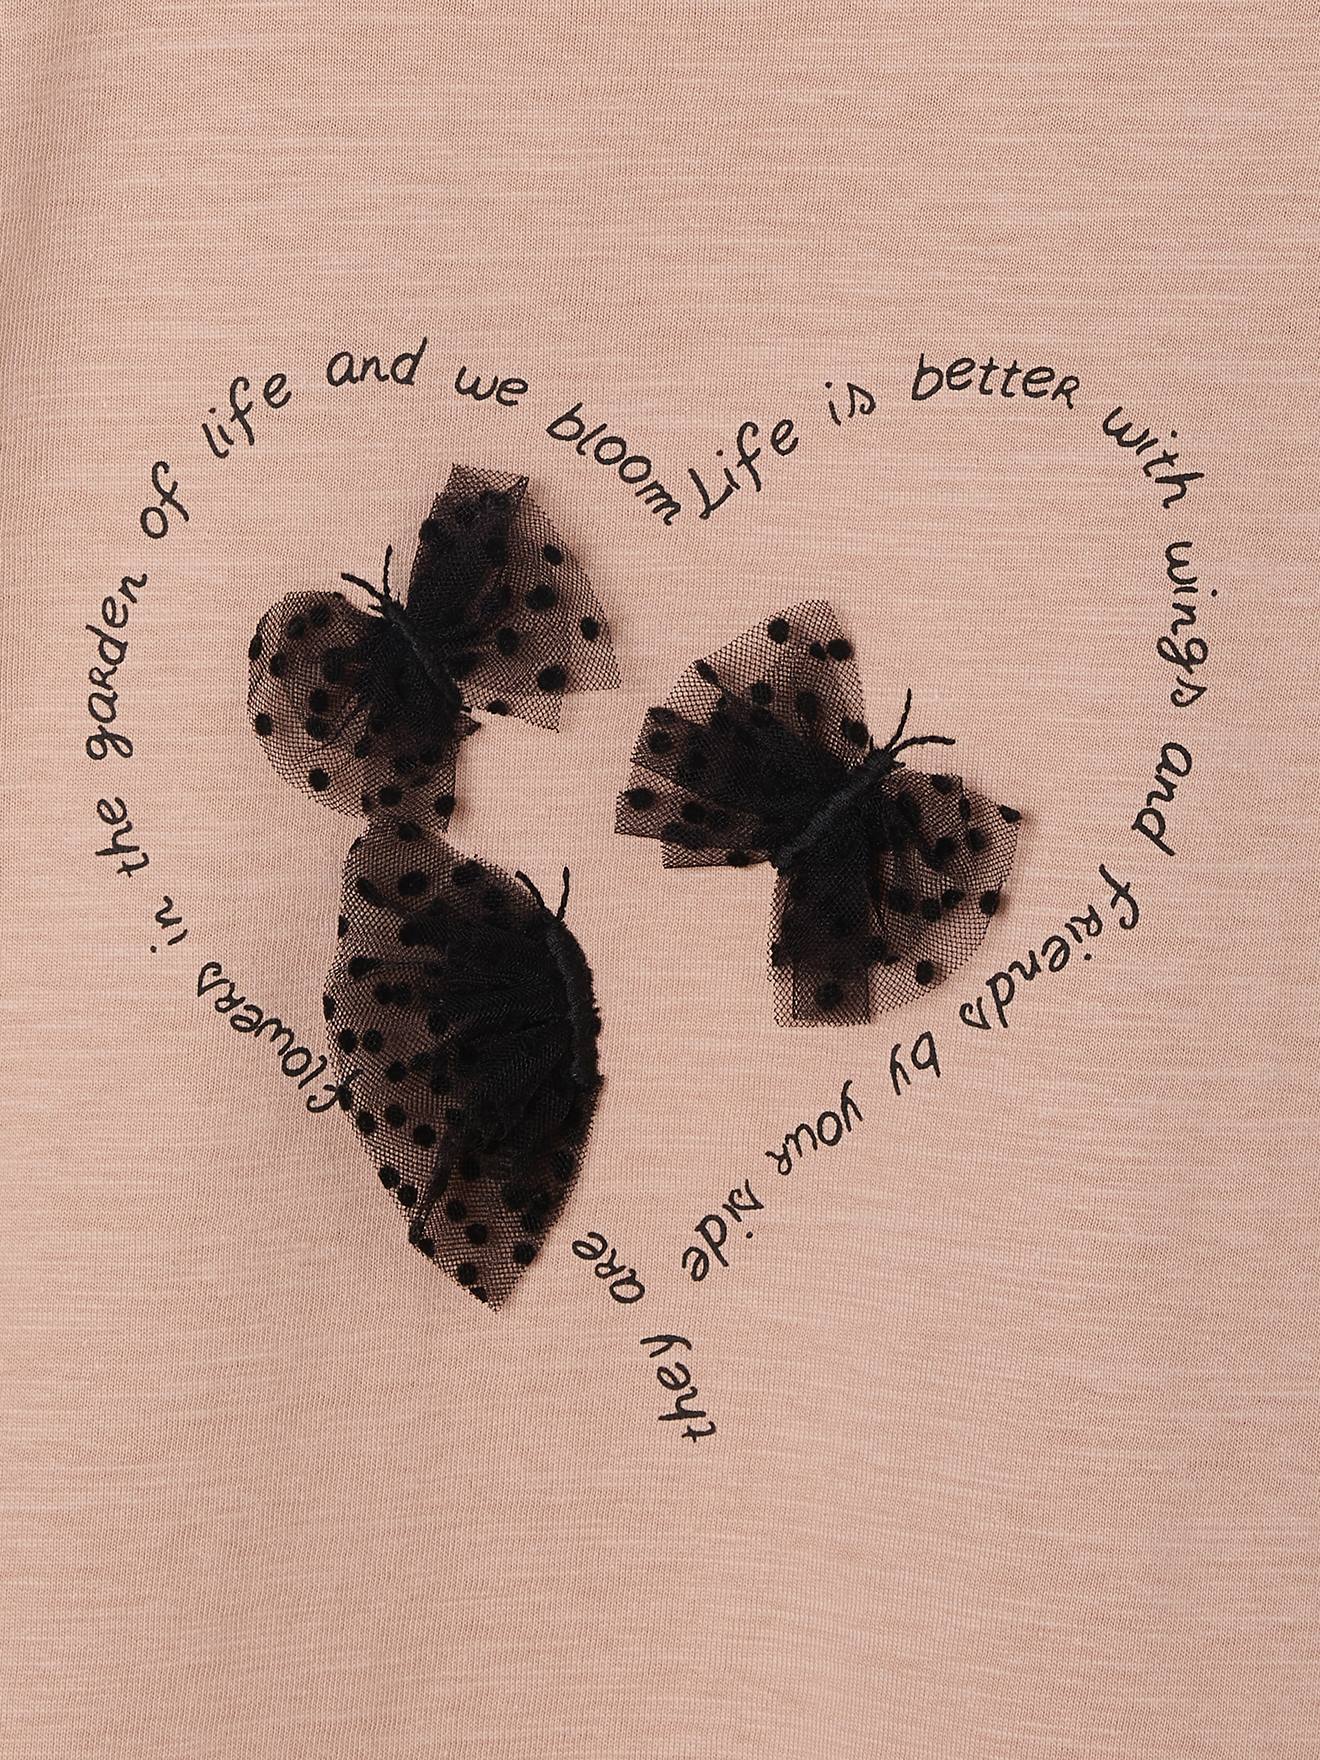 Life is better with wings and friends by your side
they are flowers in the garden of life and we bloom